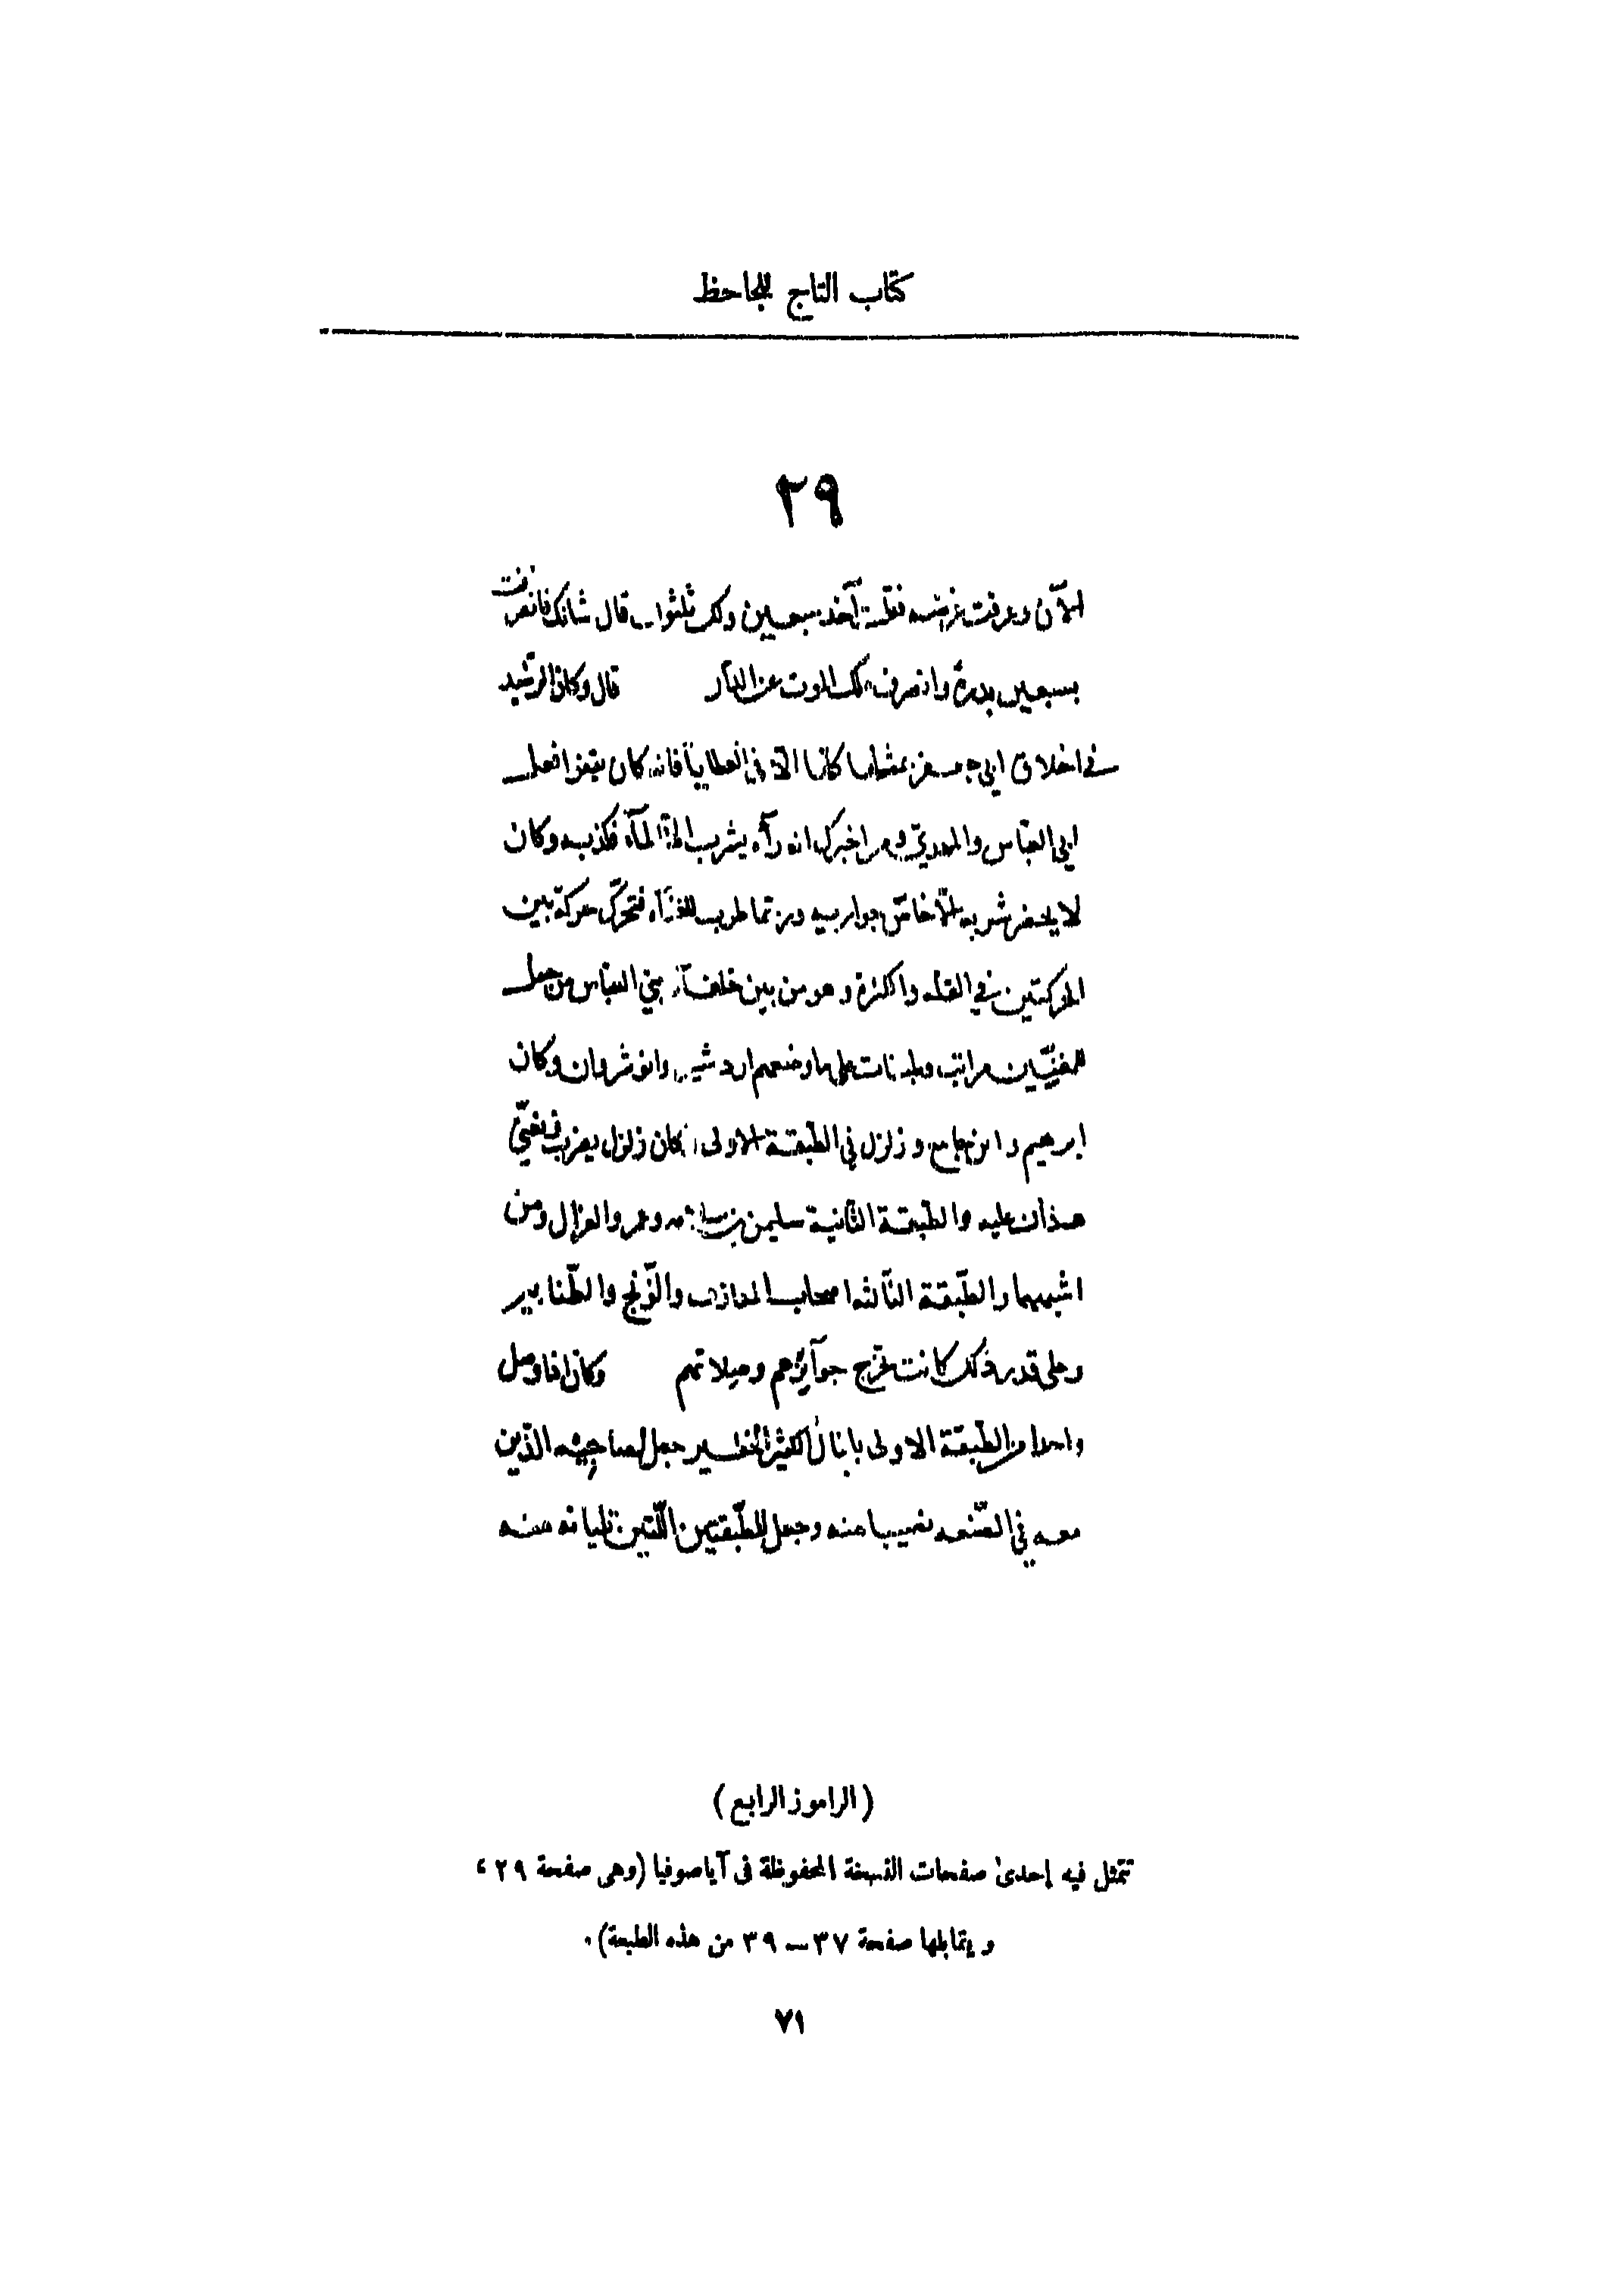 كتاب التاج للجاحظ
٢٩
الآن وعرفت غرضه فقلت آخذ سبعين ولك ثلثون قال شانك فانصرفت
بسبعين بدرة وانصرف ملك الموت عن الدار قال وكان الرشيد
في اخلاق ابي جعفر يمتثلها كلها الا في العطايا فانه كان يقفوا فعل
ابي العباس والمهديّ ومن اخبرك انه رآه يشرب الا المآء فكذبه وكان
لا يحضر شربه الّا خاصّ جواريه وربّما طرب للغنآء فتحرّك حركة بين
الحركتين في القله والكثرة وهو من بين خلفآء بني العبّاس من جعل
للمغنّيين مراتب وطبقات على ما وضعهم اردشير وانوشروان وكان
ابرهيم وابن جامع وزلزل في الطّبقة الاولى وكان زلزل يضرب ويغنّي
هذان عليه والطّبقة الثّانية سليمن بن سلامه وعمرو الغزال ومن
اشبههما والطّبقة الثّالثه اصحاب المعازف والوّنج والطّنابير
وعلى قدر ذلك كانت تخرج جوآيزهم وصلاتهم وكان اذا وصل
واحدا من الطّبقة الاولى بالمال الكثير الخطير جعل لصاحبيه الّذين
معه في الصّنعه نصيبا منه وجعل للطّبقتين اللّتين تليانه منه
(الراموز الرابع)
تتمثل فيه إحدى صفحات النسخة المحفوظة فى آياصوفيا (وهى صفحة ٢٩،
ويقابلها صفحة ٣٧ — ٣٩ من هذه الطبعة).
٧١